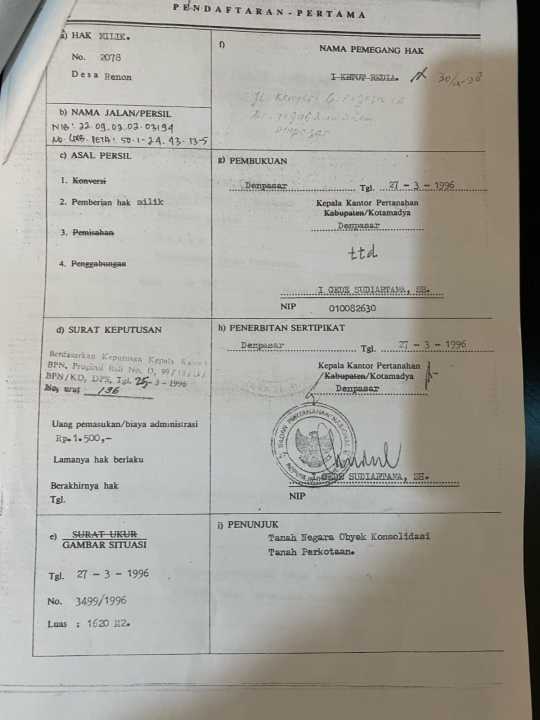 PENDAFTARAN - PERTAMA
a) HAK MILIK.
No. 2078
Desa Renon
b) NAMA JALAN/PERSIL
NIB: 22.09.03.02.03194
No. Lbr. PETA: 50.1-24.93-13-5
c) ASAL PERSIL
1. Konversi
2. Pemberian hak milik
3. Pemisahan
4. Penggabungan
d) SURAT KEPUTUSAN
Berdasarkan Keputusan Kepala
BPN, Propinsi Bali No. D, 99/
BPN/KD, DPS, Tgl. 25-3-1996
No, urut 136
Uang pemasukan/biaya administrasi
Rp. 1.500,-
Lamanya hak berlaku
Berakhirnya hak
Tgl.
e) SURAT UKUR
GAMBAR SITUASI
Tgl. 27 - 3 - 1996
No. 3499/1996
Luas : 1620 M2.
f) NAMA PEMEGANG HAK
I KETUT REDIA.
Denpasar
g) PEMBUKUAN
Denpasar Tgl. 27 - 3 - 1996
Kepala Kantor Pertanahan
Kabupaten/Kotamadya
Denpasar
ttd
I GEDE SUDIARTAMA, SH.
NIP 010082630
h) PENERBITAN SERTIPIKAT
Denpasar Tgl. 27 - 3 - 1996
Kepala Kantor Pertanahan
/Kabupaten/Kotamadya
Denpasar
BADAN PERTANAHAN NASIONAL
I GEDE SUDIARTAMA, SH.
NIP
i) PENUNJUK
Tanah Negara Obyek Konsolidasi
Tanah Perkotaan.